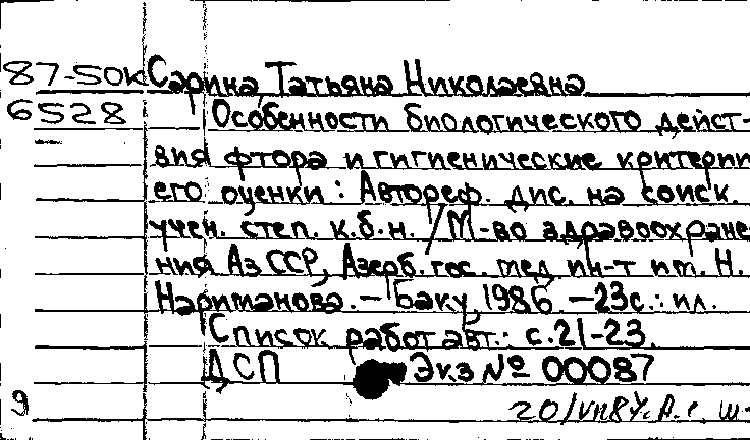 87-50к Сарина, Татьяна Николаевна
6528 Особенности биологического дейст-
вия фтора и гигиенические критерии
его оценки : Автореф. дис. на соиск.
учен. степ. к.б.н. / М-во здравоохране-
ния АзССР, Азерб. гос. мед. ин-т им. Н.
Нариманова. – Баку, 1986. – 23с. : ил.
Список работ авт.: с. 21-23.
ДСП Экз № 00087
9